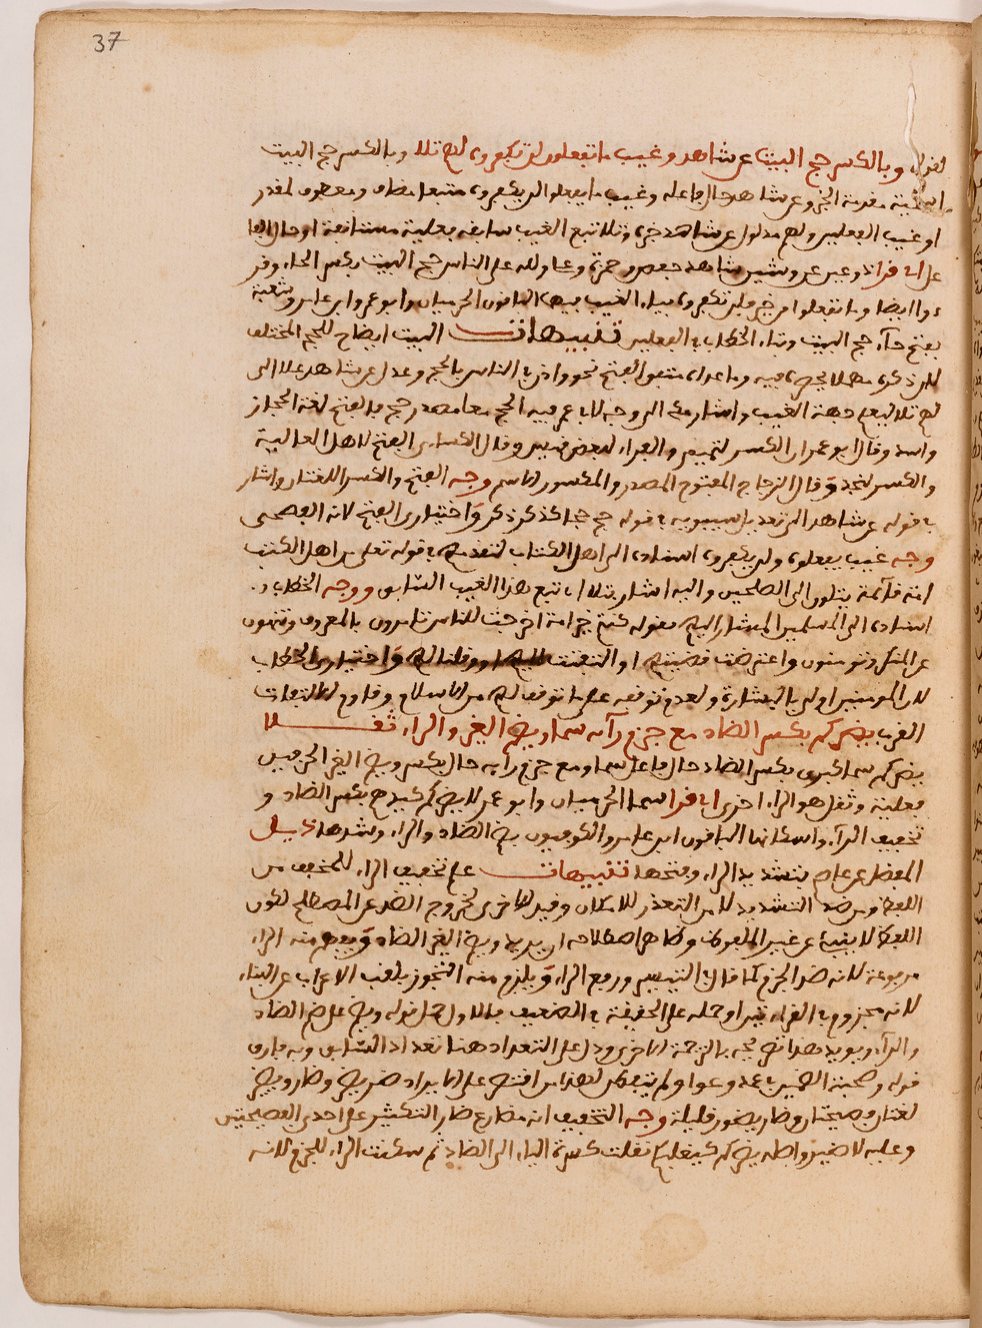 37
لغزله وبالكسر حج البيت عن شاهد وغيب ما تفعلوا لن تكفروه لهم تلا وبالكسر حج البيت
اسمية مقدمة الخبر وعن شاهد حال فاعله وغيب ما يفعلوا لن يكفروه متبعا مضاف ومعطوف لمقدر
او غيب الفعلين ولهم مدلول عن شاهد خبره وتلا تبع الغيب سابقه فعلية مستانفة او حال
على اي قرا ذو عين عن وشين شاهد حفص وحمزة وعلي ولله على الناس حج البيت بكسر الحاء وقر
ءوا ايضا وما تفعلوا من خير فلن تكفروه بياء الغيب فيهما الباقون الحرميان وابو عمرو وابن عامر وشعبة
بفتح حاء حج البيت وتاء الخطاب في الفعلين تنبيهات البيت ايضاح للحج المختلف
وما عداه متفق الفتح نحو واذن في الناس بالحج وعدل عن شاهد علا الى
لهم تلا ليعم جهة الغيب واشار معا مصدر حج فالفتح لغة الحجاز
واسد وقال ابو عمر ان الكسر لتميم والفراء لبعض قيس وقال الكسائي الفتح لاهل العالية
والكسر لنجد وقال الزجاج المفتوح المصدر والمكسور الاسم وجه الفتح والكسر اللغتان واشار
بقوله عن شاهد الى تعديل سيبويه بقوله حج حجا كذكر ذكرا واختياري الفتح لانه الفصحى
وجه غيب يفعلوه ولن يكفروه اسناده الى اهل الكتاب لتقدمهم في قوله تعلى من اهل الكتب
امة قائمة يتلون الى الصلحين واليه اشار بتلا اي تبع هذا الغيب السابق ووجه الخطاب
اسناده الى المسلمين المشار اليهم بقوله كنتم خير امة اخرجت للناس تامرون بالمعروف وتنهون
عن المنكر وتومنون واعترضت قصتهم او التفت اليهم او وقلنا لهم واختياري الخطاب
لان المومنين اولى بالبشارة ولعدم توقفه على ما توقف لهم من الاسلام وقاوم الالتفات
القرب يضركم بكسر الضاد مع جزم رائه سما ويضم الغير والراء ثقلا
يضركم سما كبرى بكسر الضاد حال فاعل سما ومع جزم رائه حال بكسر ويضم الغير الحرفين
فعلية وثقل هو الراء اخرى اي قرا سما الحرميان وابو عمر لا يضركم كيدهم بكسر الضاد و
تخفيف الراء واسكانها الباقون ابن عامر والكوفيون بضم الضاد والراء وشددها ذيل
المفضل عن عاصم بتشديد الراء وفتحها تنبيهات علم تخفيف الراء للمخفف من
اللفظ ومن ضد التشديد لا من التعذر للامكان وقيد للاخرى لخروج الضم عن المصطلح لكون
اللفظ لا ينبئ عن غير الملفوظ وظاهر اصطلاحه ان يريد ويضم الغير الضاد ويفهم منه الراء
مرفوعة لانه ضد الجزم كما قال في التيسير ورفع الراء ويلزم منه التجوز بلقب الاعراب عن البناء
لانه مجزوم في القراءتين او حمله على الحقيقة في الضعيف فالاولى حمل قوله ويضم على ضم الضاد
والراء ويويد هذا تصريحه بالترجمة الاخرى ودل على التعداد هنا تعداد السابق وبه فارق
قوله وصحبة الضمير في عد وعوا ولم يتفطن لهذا من اقتصر على الايراد ضر يضر وضار ويضير
لغتان فصيحتان وضار يضور قليلة وجه التخفيف انه مضارع ضار التكثير على احدى الفصيحتين
وعليه لا ضير واصله يضيركم كيغلبكم نقلت كسرة الياء الى الضاد ثم سكنت الراء للجزم لانه